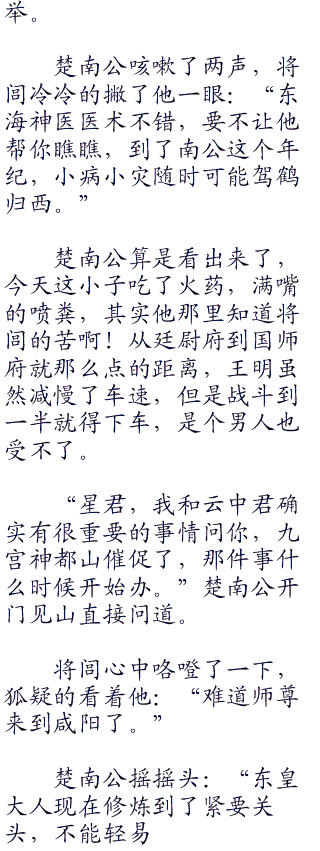 举。
楚南公咳嗽了两声，将
闾冷冷的撇了他一眼：“东
海神医医术不错，要不让他
帮你瞧瞧，到了南公这个年
纪，小病小灾随时可能驾鹤
归西。”
楚南公算是看出来了，
今天这小子吃了火药，满嘴
的喷粪，其实他那里知道将
闾的苦啊！从廷尉府到国师
府就那么点的距离，王明虽
然减慢了车速，但是战斗到
一半就得下车，是个男人也
受不了。
“星君，我和云中君确
实有很重要的事情问你，九
宫神都山催促了，那件事什
么时候开始办。”楚南公开
门见山直接问道。
将闾心中咯噔了一下，
狐疑的看着他：“难道师尊
来到咸阳了。”
楚南公摇摇头：“东皇
大人现在修炼到了紧要关
头，不能轻易